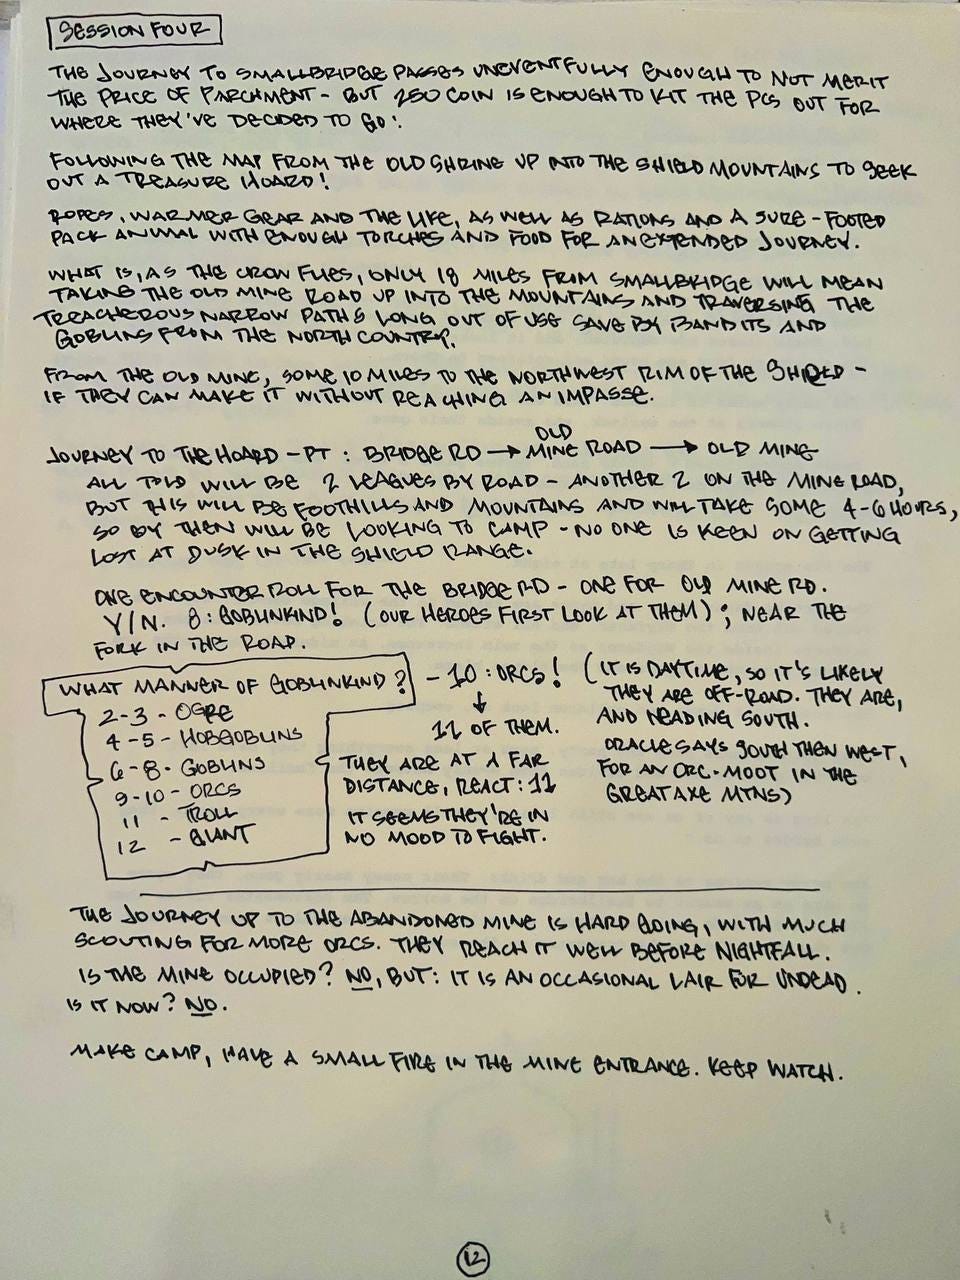 SESSION FOUR
THE JOURNEY TO SMALLBRIDGE PASSES UNEVENTFULLY ENOUGH TO NOT MERIT
THE PRICE OF PARCHMENT - BUT 250 COIN IS ENOUGH TO KIT THE PCS OUT FOR
WHERE THEY'VE DECIDED TO GO:
FOLLOWING THE MAP FROM THE OLD SHRINE UP INTO THE SHIELD MOUNTAINS TO SEEK
OUT A TREASURE HOARD!
ROPES, WARMER GEAR AND THE LIKE, AS WELL AS RATIONS AND A SURE-FOOTED
PACK ANIMAL WITH ENOUGH TORCHES AND FOOD FOR AN EXTENDED JOURNEY.
WHAT IS, AS THE CROW FLIES, ONLY 18 MILES FRIM SMALLBRIDGE WILL MEAN
TAKING THE OLD MINE ROAD UP INTO THE MOUNTAINS AND TRAVERSING THE
TREACHEROUS NARROW PATHS LONG OUT OF USE SAVE BY BANDITS AND
GOBLINS FROM THE NORTH COUNTRY.
FROM THE OLD MINE, SOME 10 MILES TO THE NORTHWEST RIM OF THE SHIELD -
IF THEY CAN MAKE IT WITHOUT REACHING AN IMPASSE.
JOURNEY TO THE HOARD - PT : BRIDGE RD → OLD MINE ROAD → OLD MINE
ALL TOLD WILL BE 2 LEAGUES BY ROAD - ANOTHER 2 ON THE MINE ROAD,
BUT THIS WILL BE FOOTHILLS AND MOUNTAINS AND WILL TAKE SOME 4-6 HOURS,
SO BY THEN WILL BE LOOKING TO CAMP - NO ONE IS KEEN ON GETTING
LOST AT DUSK IN THE SHIELD RANGE.
ONE ENCOUNTER ROLL FOR THE BRIDGE RD - ONE FOR OLD MINE RD.
Y/N. 8: GOBLINKIND! (OUR HEROES FIRST LOOK AT THEM) ; NEAR THE
FORK IN THE ROAD.
WHAT MANNER OF GOBLINKIND?
2-3 - OGRE
4-5 - HOBGOBLINS
6-8 - GOBLINS
9-10 - ORCS
11 - TROLL
12 - GIANT
- 10: ORCS!
↓
11 OF THEM.
THEY ARE AT A FAR
DISTANCE, REACT: 11
IT SEEMS THEY'RE IN
NO MOOD TO FIGHT.
(IT IS DAYTIME, SO IT'S LIKELY
THEY ARE OFF-ROAD. THEY ARE,
AND HEADING SOUTH.
ORACLE SAYS SOUTH THEN WEST,
FOR AN ORC-MOOT IN THE
GREATAXE MTNS)
THE JOURNEY UP TO THE ABANDONED MINE IS HARD GOING, WITH MUCH
SCOUTING FOR MORE ORCS. THEY REACH IT WELL BEFORE NIGHTFALL.
IS THE MINE OCCUPIED? NO, BUT: IT IS AN OCCASIONAL LAIR FOR UNDEAD.
IS IT NOW? NO.
MAKE CAMP, HAVE A SMALL FIRE IN THE MINE ENTRANCE. KEEP WATCH.
12